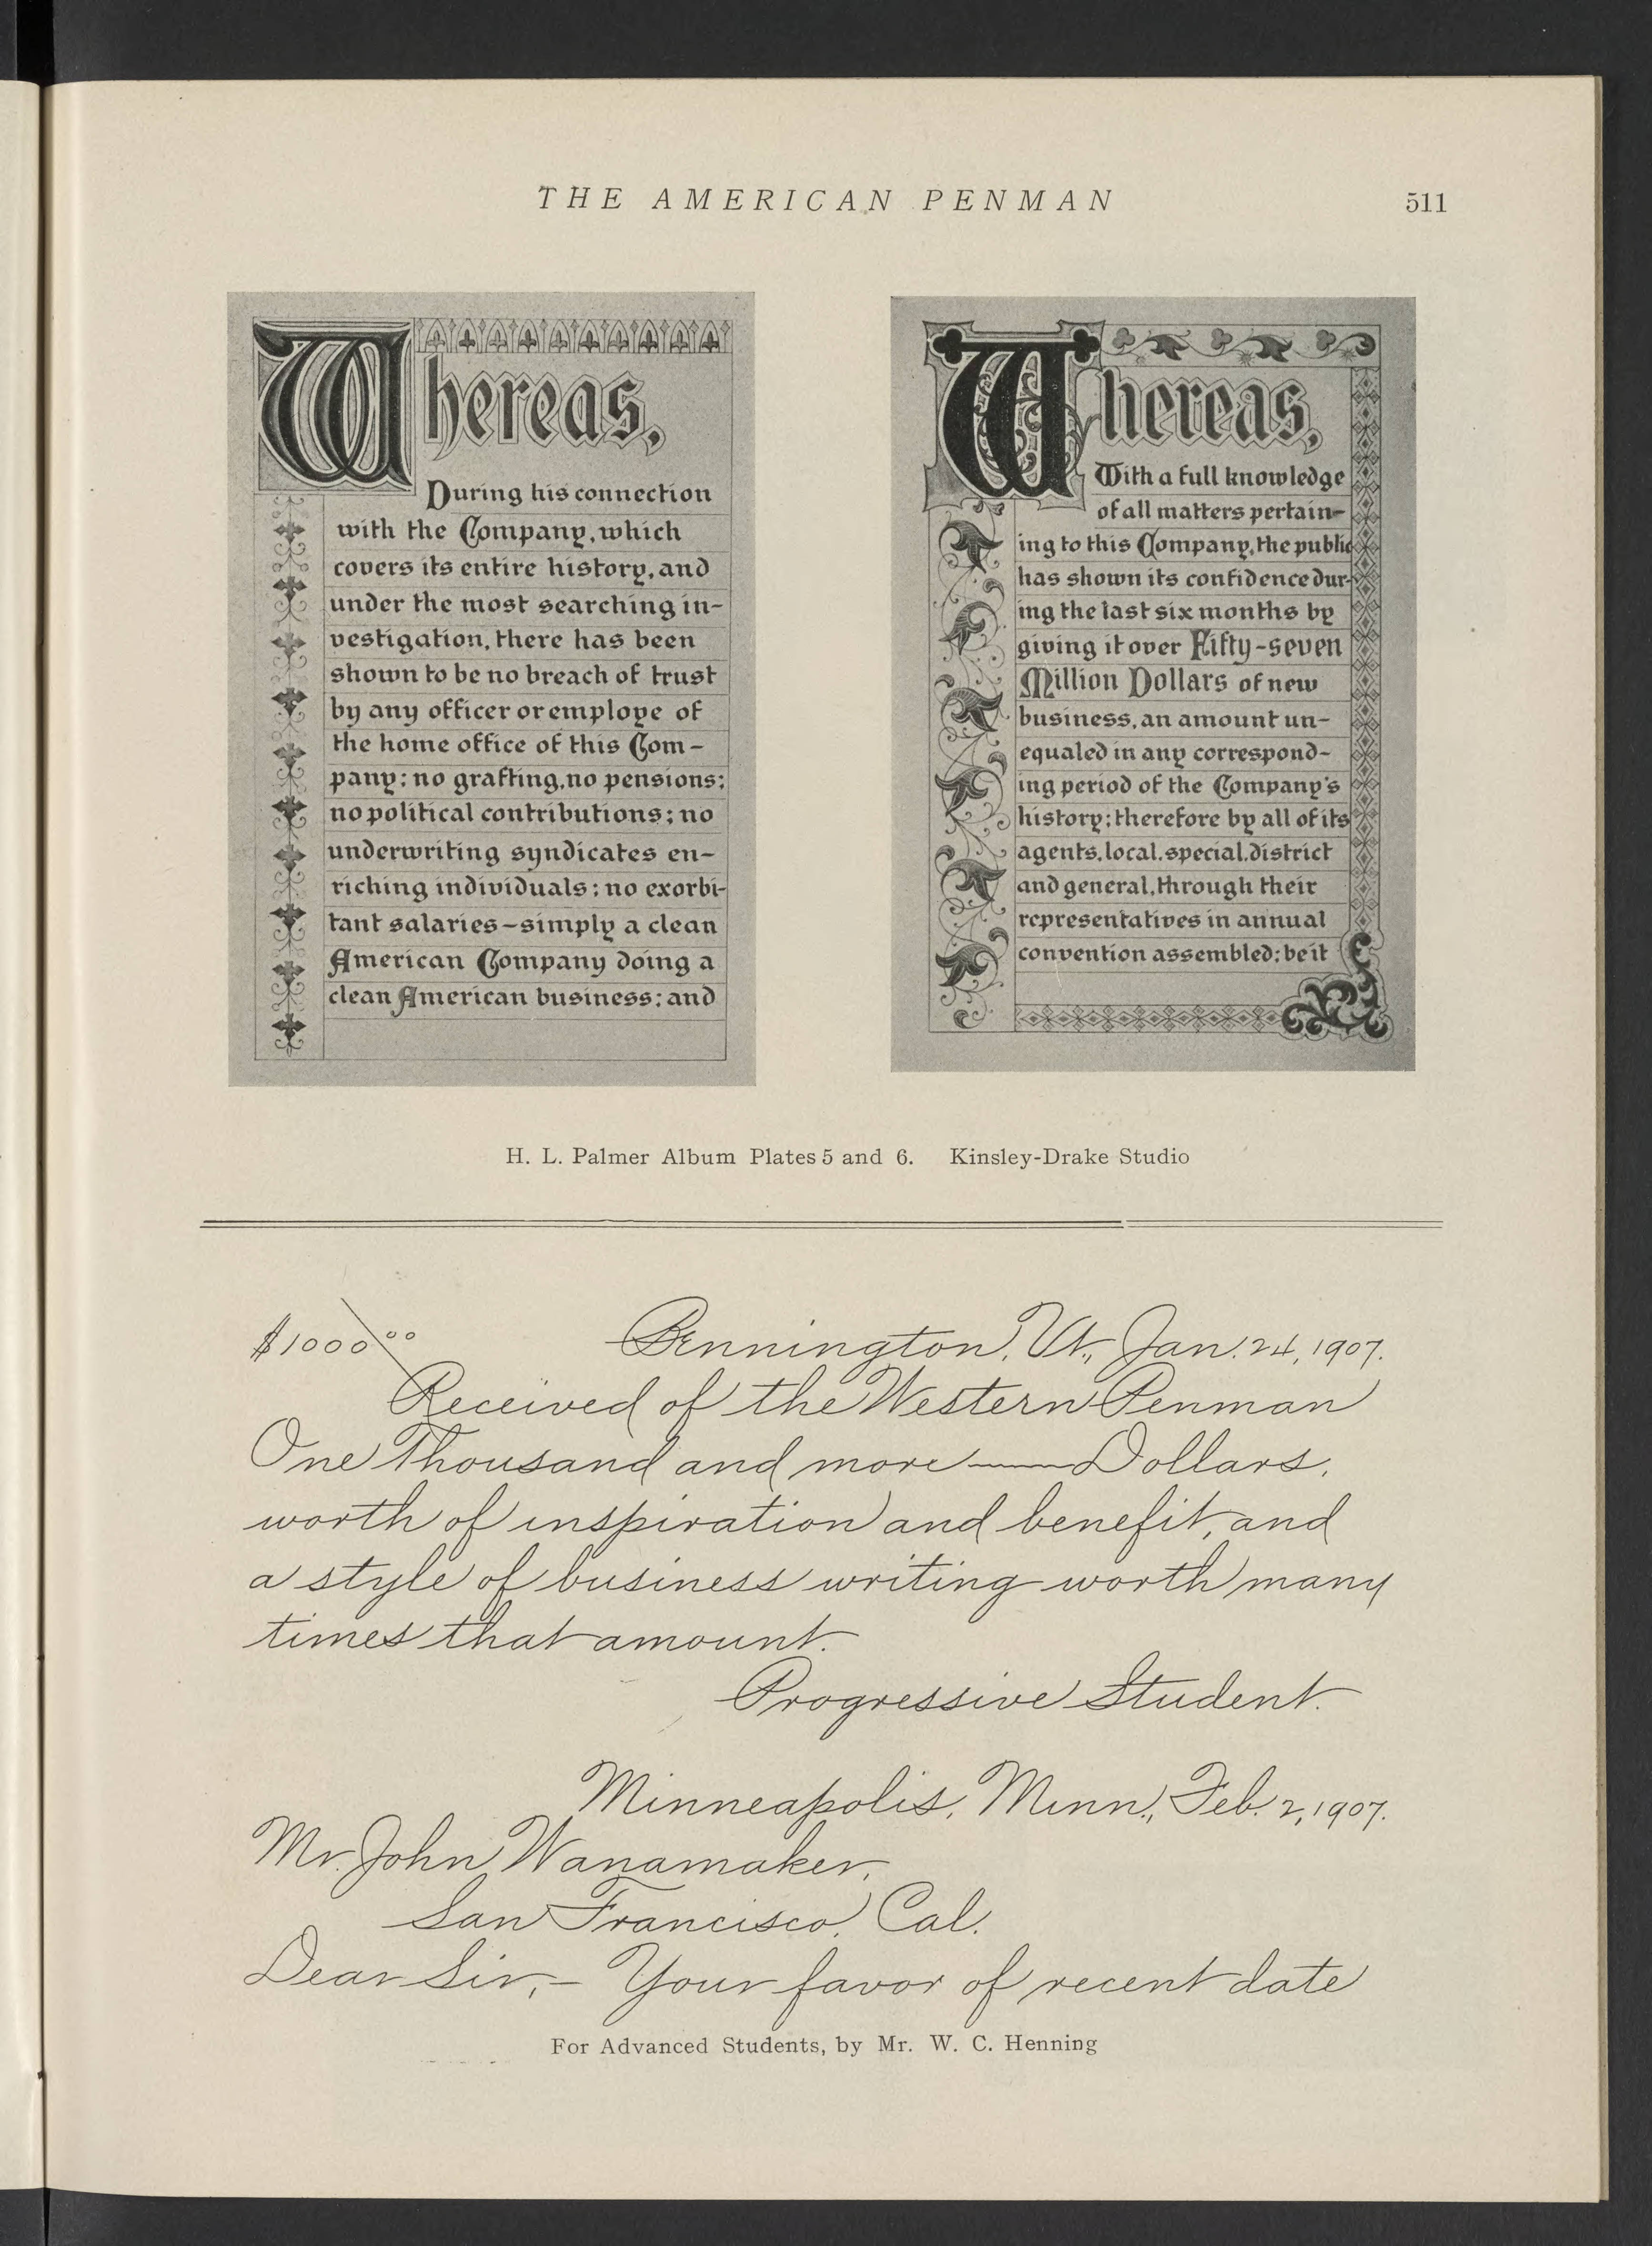 THE AMERICAN PENMAN 511
Whereas,
During his connection
with the Company, which
covers its entire history, and
under the most searching in-
vestigation, there has been
shown to be no breach of trust
by any officer or employe of
the home office of this Com-
pany; no grafting, no pensions;
no political contributions; no
underwriting syndicates en-
riching individuals; no exorbi-
tant salaries–simply a clean
American Company doing a
clean American business; and
Whereas,
With a full knowledge
of all matters pertain-
ing to this Company, the public
has shown its confidence dur-
ing the last six months by
giving it over Fifty-seven
Million Dollars of new
business, an amount un-
equaled in any correspond-
ing period of the Company's
history; therefore by all of its
agents, local, special, district
and general, through their
representatives in annual
convention assembled: be it
H. L. Palmer Album Plates 5 and 6. Kinsley-Drake Studio
$1000 00 Bennington, Vt., Jan. 24, 1907.
Received of the Western Penman
One Thousand and more —— Dollars,
worth of inspiration and benefit, and
a style of business writing worth many
times that amount.
Progressive Student.
Minneapolis, Minn., Feb. 2, 1907.
Mr. John Wanamaker,
San Francisco, Cal.
Dear Sir,– Your favor of recent date
For Advanced Students, by Mr. W. C. Henning